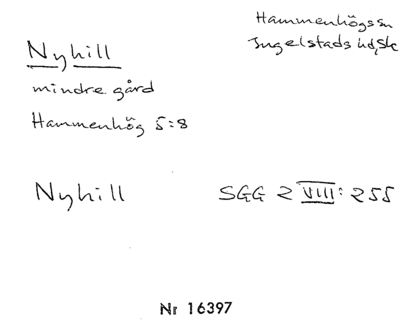 Hammenhögs sn
Ingelstads hd, Sk
Nyhill
mindre gård
Hammenhög 5:8
Nyhill SGG 2 VIII: 255
Nr 16397